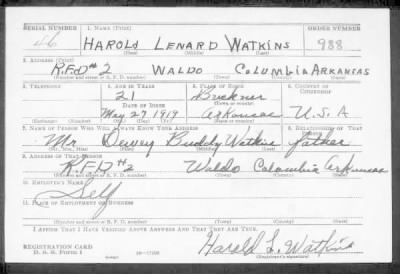 SERIAL NUMBER 1. NAME (Print) ORDER NUMBER
46 HAROLD LENARD WATKINS 988
(First) (Middle) (Last)
2. ADDRESS (Print)
R.F.D #2 WALDO COLUMBIA ARKANSAS
(Number and street or R. F. D. number) (Town) (County) (State)
3. TELEPHONE 4. AGE IN YEARS 5. PLACE OF BIRTH 6. COUNTRY OF CITIZENSHIP
21 Buckner
DATE OF BIRTH (Town or county)
May 27 1919 Arkansas U.S.A
(Mo.) (Day) (Yr.) (State or country)
7. NAME OF PERSON WHO WILL ALWAYS KNOW YOUR ADDRESS 8. RELATIONSHIP OF THAT PERSON
Mr Dewey Buddy Watkins father
(Mr., Mrs., Miss) (First) (Middle) (Last)
9. ADDRESS OF THAT PERSON
R.F.D #2 Waldo Columbia Arkansas
(Number and street or R. F. D. number) (Town) (County) (State)
10. EMPLOYER'S NAME
Self
11. PLACE OF EMPLOYMENT OR BUSINESS
(Number and street or R. F. D. number) (Town) (County) (State)
I AFFIRM THAT I HAVE VERIFIED ABOVE ANSWERS AND THAT THEY ARE TRUE.
REGISTRATION CARD Harold L. Watkins
D. S. S. FORM 1 (Registrant's signature)